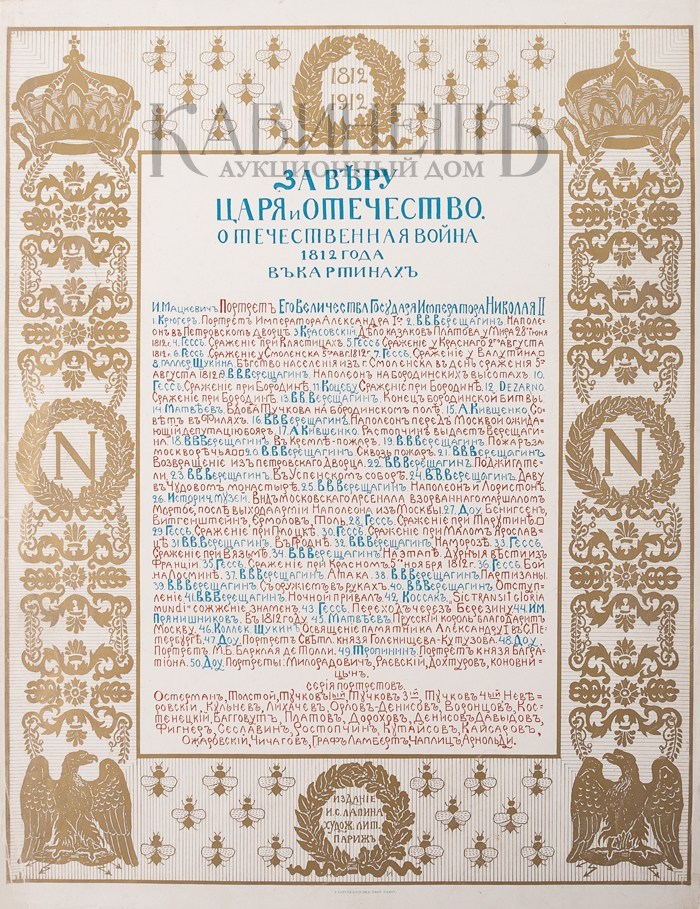 1812
1912
КАБИНЕТЪ
АУКЦИОННЫЙ ДОМ
ЗА ВѢРУ
ЦАРЯ и ОТЕЧЕСТВО.
ОТЕЧЕСТВЕННАЯ ВОЙНА
1812 ГОДА
ВЪ КАРТИНАХЪ
И. Мацкевичъ Портретъ Его Величества Государя Императора Николая II
1. Крюгеръ. Портретъ Императора Александра Iго 2. В.В.Верещагинъ Наполе=
онъ въ Петровскомъ дворцѣ 3. Красовскій. Дѣло казаковъ Платова у Мира 28го Июня
1812 г. 4. Гессъ. Сраженіе при Клястицахъ. 5. Гессъ Сраженіе у Краснаго 2го августа
1812. 6. Гессъ. Сраженіе у Смоленска 5го авг. 1812г. 7. Гессъ. Сраженіе у Валутина
8. Галлер. Щукина. Бѣгство населенія изъ г. Смоленска въ день сраженія 5го
августа 1812. 9. В.В.Верещагинъ. Наполеонъ на Бородинскихъ высотахъ 10.
Гессъ, Сраженіе при Бородинѣ. 11. Коцебу Сраженіе при Бородинѣ. 12. DEZARNO
Сраженіе при Бородинѣ 13. В.В.Верещагинъ. Конецъ Бородинской битвы
14. Матвѣевъ. Вдова Тучкова на бородинскомъ полѣ. 15. А. Кившенко. Со=
вѣтъ въ Филяхъ. 16. В.В.Верещагинъ Наполеонъ передъ Москвой ожида=
ющій депутацію бояръ. 17. А. Кившенко. Растопчинъ выдаетъ Вереща=
гина. 18. В.В.Верещагинъ. Въ Кремлѣ-пожаръ. 19. В.В.Верещагинъ Пожаръ за=
москворѣчья 20. В.В.Верещагинъ Сквозь пожаръ. 21. В.В.Верещагинъ
Возвращеніе изъ петровскаго Дворца. 22. В.В.Верещагинъ Поджигате=
ли. 23. В.В.Верещагинъ. Въ Успенскомъ соборѣ. 24. В.В.Верещагинъ. Даву
въ Чудовомъ монастырѣ. 25. В.В.Верещагинъ. Наполеонъ и Лористонъ
26. Историч. музей. Видъ московскаго Арсенала взорваннаго маршаломъ
Мортье, послѣ выхода арміи Наполеона изъ Москвы. 27. Доу. Бенигсенъ,
Витгенштейнъ, Ермоловъ, Толь. 28. Гессъ. Сраженіе при Тарутинѣ
29. Гессъ. Сраженіе при Плоцкѣ. 30. Гессъ. Сраженіе при Маломъ Ярослав=
цѣ 31. В.В.Верещагинъ. Въ Гроднѣ. 32. В.В.Верещагинъ. На морозѣ. 33. Гессъ.
Сраженіе при Вязьмѣ. 34. В.В.Верещагинъ. На этапѣ. Дурныя вѣсти изъ
Франціи. 35. Гессъ. Сраженіе при Красномъ 5го ноября 1812 г. 36. Гессъ. Бой
на Лосминѣ. 37. В.В.Верещагинъ. Атака. 38. В.В.Верещагинъ. Партизаны.
39. В.В.Верещагинъ. Съ оружіемъ въ рукахъ. 40. В.В.Верещагинъ. Отступ=
леніе 41. В.В.Верещагинъ. Ночной привалъ 42. Коссакъ. „Sic transit gloria
mundi“ сожженіе знаменъ. 43. Гессъ. Переходъ черезъ Березину 44. Ил.
Прянишниковъ. Въ 1812 году 45. Матвѣевъ. Прусскій король благодаритъ
Москву. 46. Коллек. Щукинъ. Освященіе памятника Александру I въ С. Пе=
тербургѣ. 47. Доу. Портретъ Свѣтл. князя Голенищева-Кутузова. 48. Доу.
Портретъ М.Б. Барклая де Толли. 49. Тропининъ. Портретъ князя Багра=
тіона. 50. Доу. Портреты: Милорадовичъ, Раевскій, Дохтуровъ, коновни=
цынъ.
серія портретовъ.
Остерманъ, Толстой, Тучковъ 1ый, Тучковъ 3-ій, Тучковъ 4ый Невѣ=
ровскій, Кульневъ, Лихачевъ, Орловъ-Денисовъ, Воронцовъ, Кос=
тенецкій, Багговутъ, Платовъ, Дороховъ, Денисовъ Давыдовъ,
Фигнеръ, Сеславинъ, Ростопчинъ, Кутайсовъ, Кайсаровъ,
Ожаровскій, Чичаговъ, Графъ Ламбертъ, Чаплицъ, Арнольди.
N
N
ИЗДАНІЕ
И.С. ЛАПИНА
ХУДОЖ. ЛИТ.
ПАРИЖЪ